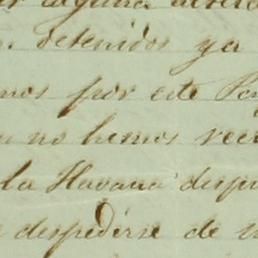 alguna
detenidos ya
mos por este
no hemos reci
la Havana despu
despedirse de